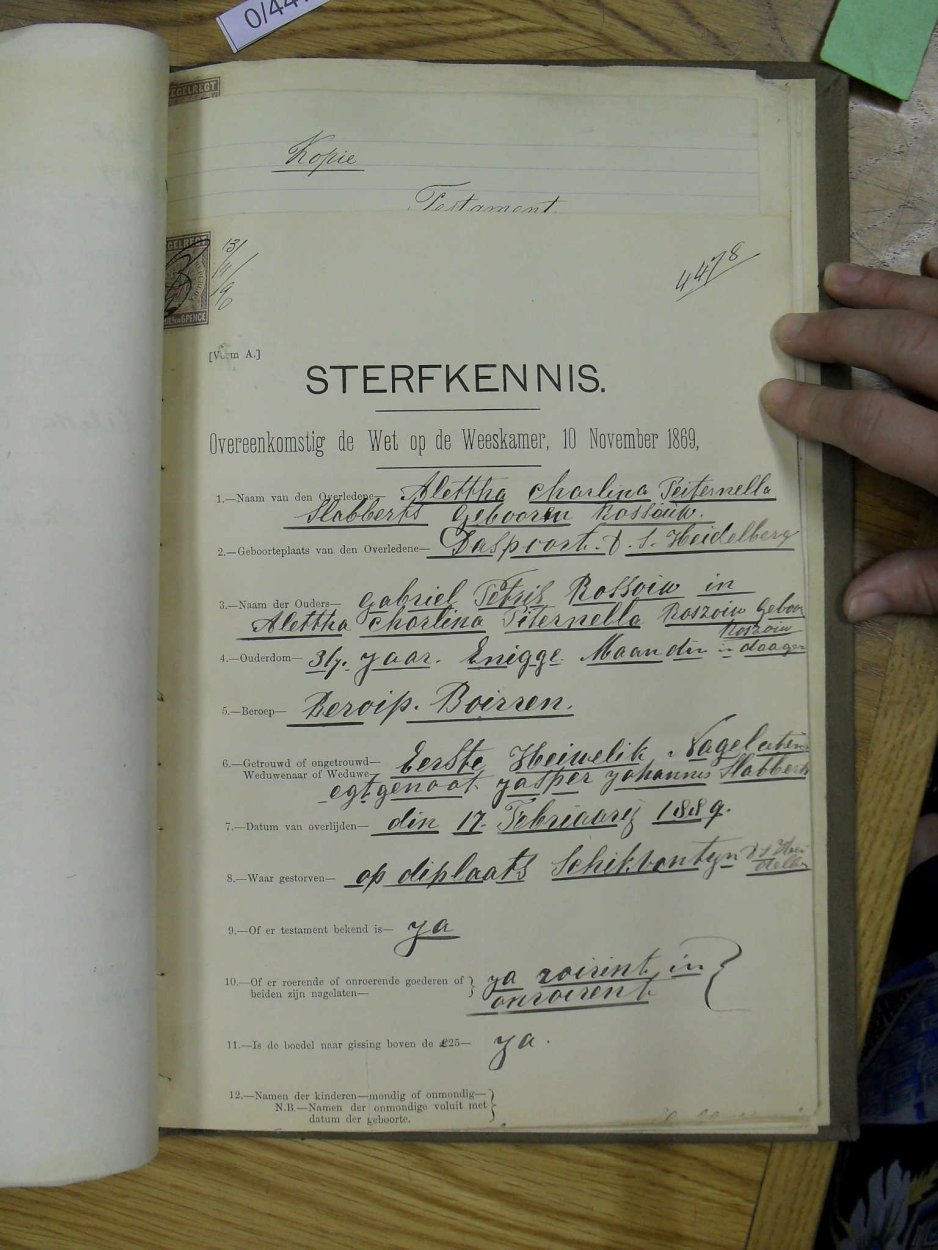 0/447
ZEGELREGT
Kopie
Testament
ZEGELREGT
13/
9/
96
6 PENCE
4478
[Vorm A.]
STERFKENNIS.
Overeenkomstig de Wet op de Weeskamer, 10 November 1869,
1.—Naam van den Overledene— Alettha Charlina Peiternella
Slabberts Gebooren Rossouw.
2.—Geboorteplaats van den Overledene— Daspoort. D. S. Heidelberg
3.—Naam der Ouders— Gabriel Petris Rossouw in
Alettha Charlina Piternella Roszouw Geboor
Roszouw
4.—Ouderdom— 34. yaar. Enigge Maanden in daagen
5.—Beroep— Beroip. Boirren.
6.—Getrouwd of ongetrouwd— Eerste Heiwelik Nagelaten
Weduwenaar of Weduwe— egtgenoot yasper yohannis Slabberts
7.—Datum van overlijden— din 17 Febriaarij 1889.
8.—Waar gestorven— op diplaats Schikfontyn D S Hei
delber
9.—Of er testament bekend is— ya
10.—Of er roerende of onroerende goederen of } ya roirint in
beiden zijn nagelaten— onroirent
11.—Is de boedel naar gissing boven de £25— ya.
12.—Namen der kinderen—mondig of onmondig—
N.B.—Namen der onmondige voluit met
datum der geboorte.